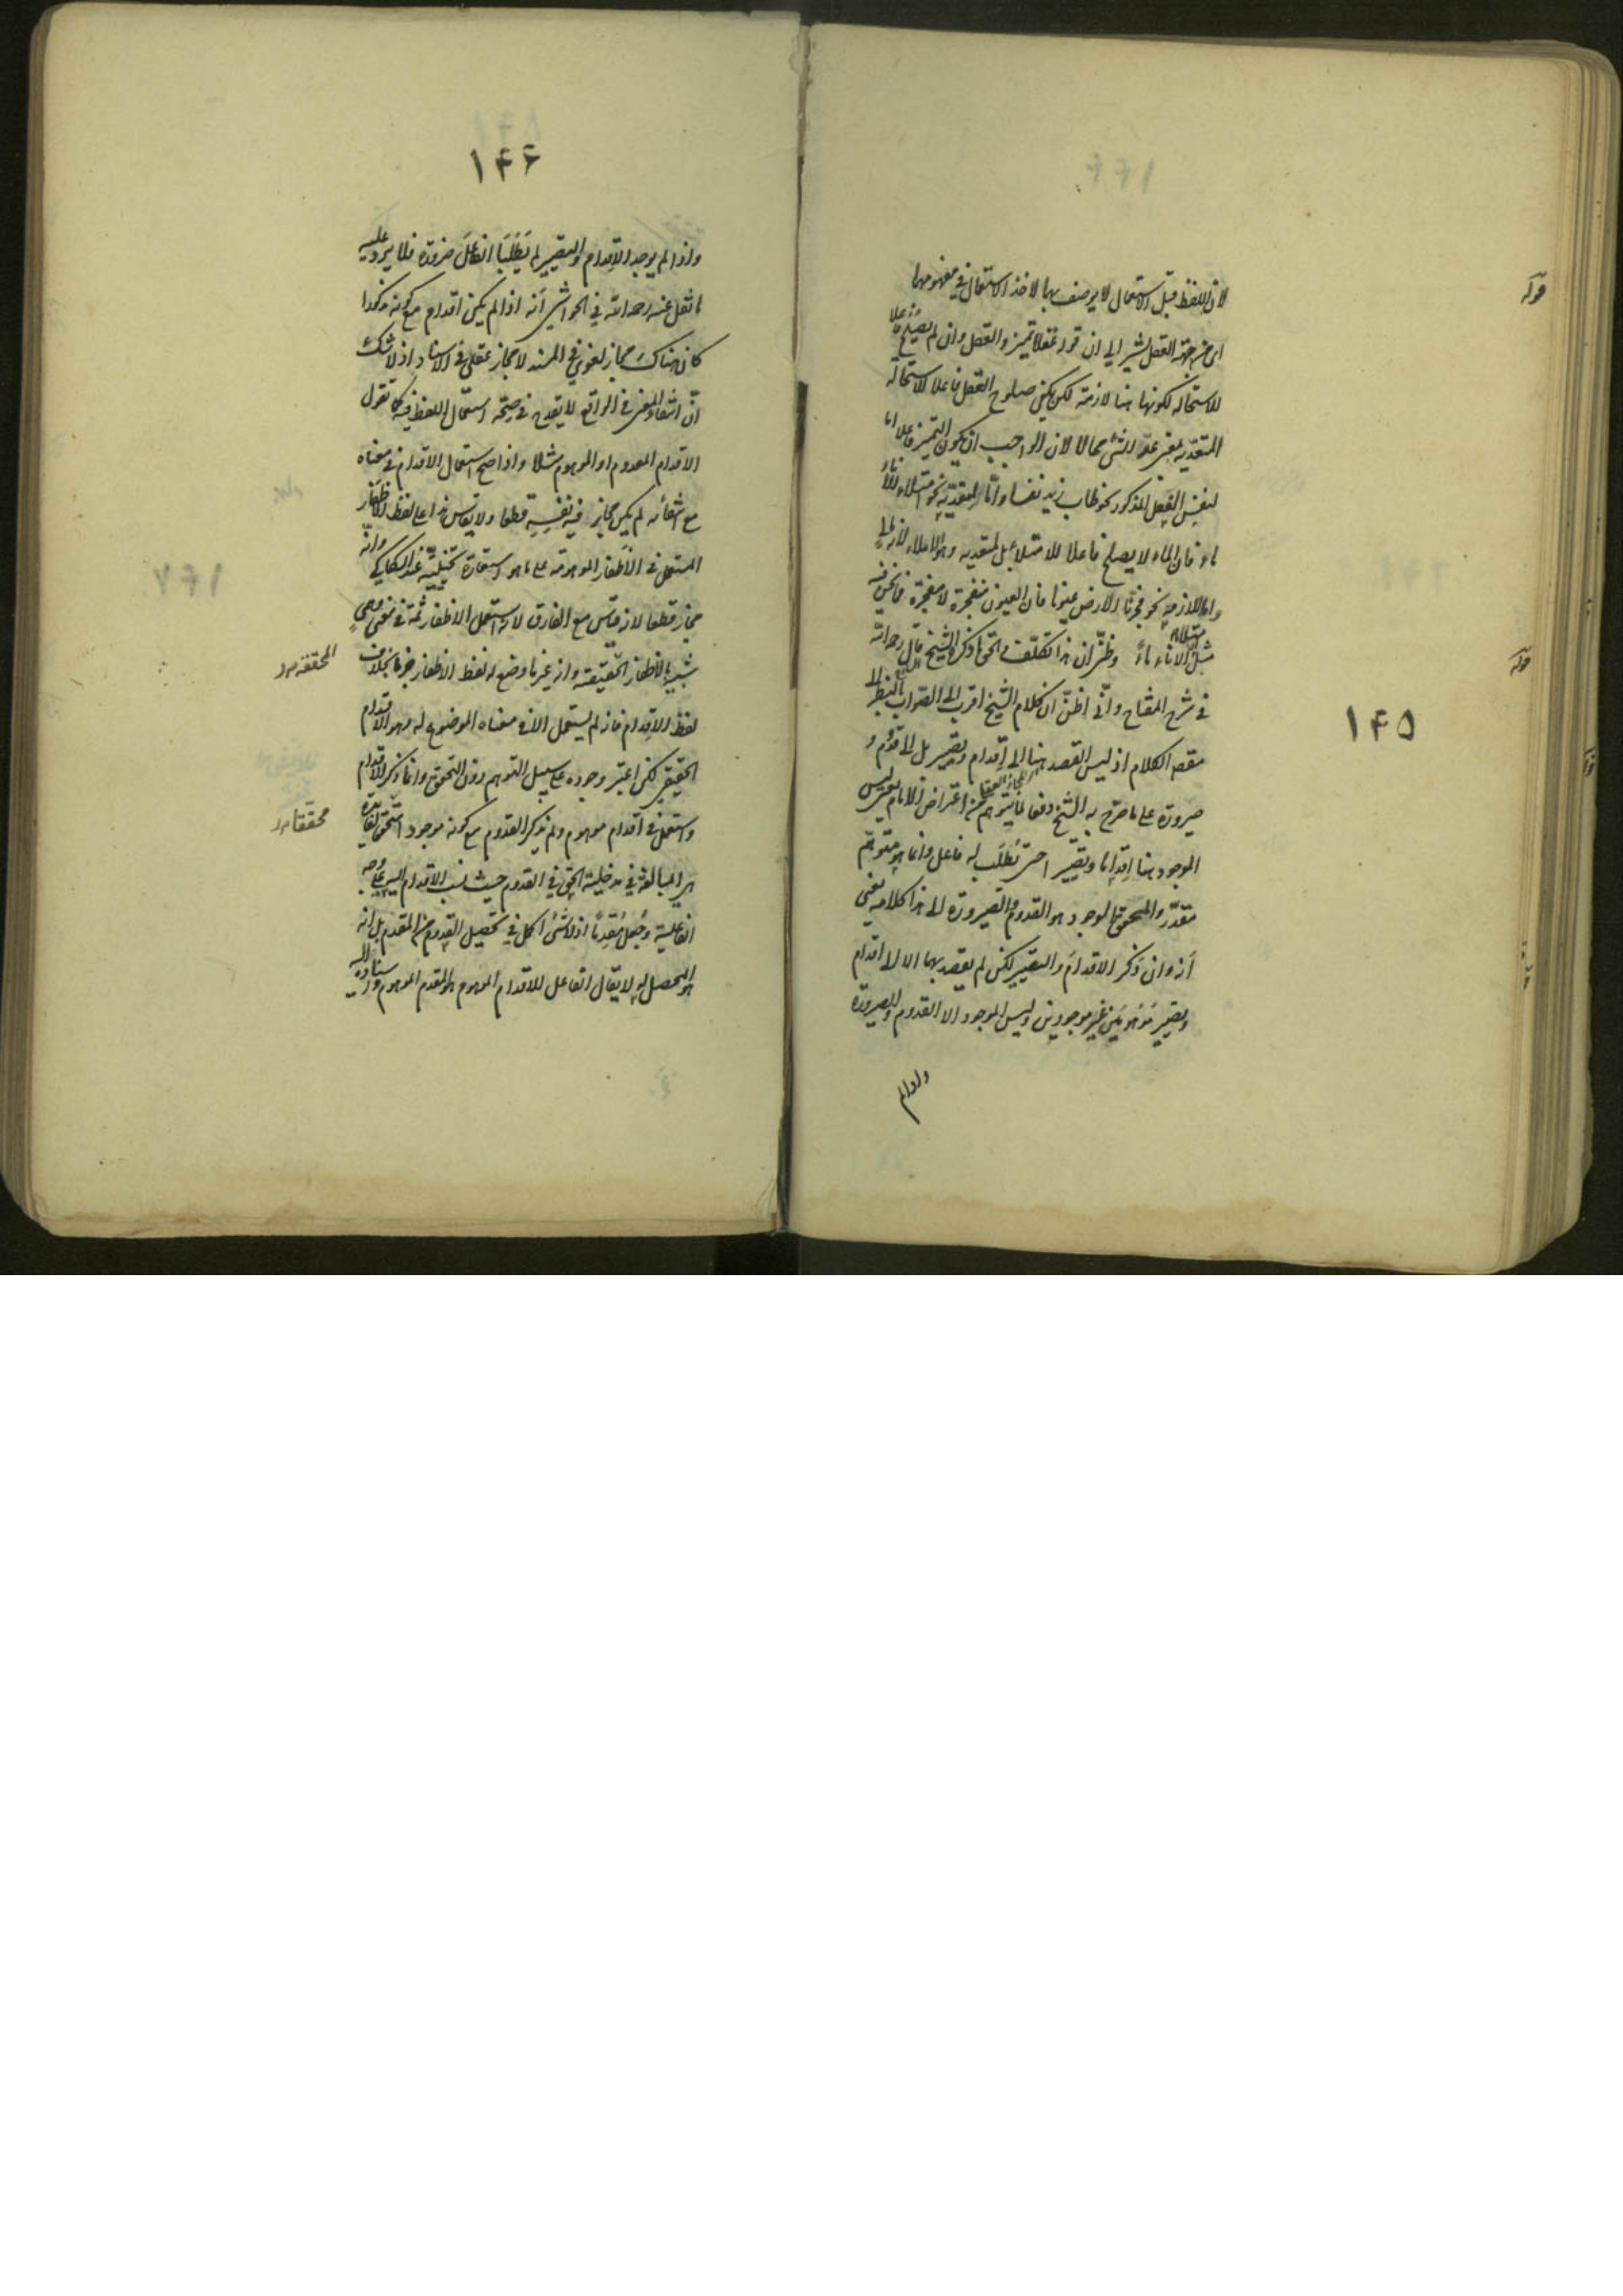 ١۴۵
لان اللفظ قبل الاستعمال لا يوصف بها لاخذ الاستعمال في مفهومها
اى من جهة العقل يشير الى ان قوله عقلا تميز والعقل وان لم يصلح فاعلا
للاستحالة لكونها هنا لازمة لكن يكفى صلوح العقل فاعلا للاستحالة
المتعدية بمعنى عد الشئ محالا لان الواجب ان يكون التميز فاعلا اما
لنفس الفعل المذكور نحو طاب زيد نفسا واما لمتعديه نحو امتلاء الاناء
ماء فان الماء لا يصلح فاعلا للامتلاء بل لمتعديه وهو الاملاء لانه
واما للازمه نحو فجرنا الارض عيونا فان العيون منفجرة لا مفجرة فما نحن فيه
مثل امتلاء الاناء ماء وظنى ان هذا تكلف والحق ما ذكره الشيخ قال رحمه الله
فى شرح المفتاح وانى اظن ان كلام الشيخ اقرب الى الصواب بالنظر الى
مقصد الكلام اذ ليس القصد هنا الى اقدام وتصيير بل الى قدوم و
صيرورة على ما صرح به الشيخ دفعا لما يتوهم من اعتراض الامام يعنى ليس
الموجود هنا اقداما وتصييرا حتى يطلب له فاعل وانما هو متوهم
مقدر والمحقق الموجود هو القدوم والصيرورة الى هذا كلامه يعنى
انه وان ذكر الاقدام والتصيير لكن لم يقصد بهما الا الى اقدام
وتصيير موهومين غير موجودين وليس الموجود الا القدوم والصيرورة
واذا لم
قوله
قوله
١۴۶
واذا لم يوجد الاقدام والتصيير لم يطلبا الفاعل ضرورة فلا يرد عليه
ما نقل عنه رحمه الله في الحواشى انه اذا لم يكن اقدام مع كونه مذكورا
كان هناك مجاز لغوى في المسند لا مجاز عقلى فى الاسناد اذ لا شك
ان انتفاء المعنى فى الواقع لا يقدح فى صحة استعمال اللفظ فيه كما تقول
الاقدام المعدوم او الموهوم مثلا واذا صح استعمال الاقدام فى معناه
مع انتفائه لم يكن مجاز فيه نفسه قطعا ولا يقاس هذا على لفظ الاظفار
المستعمل فى الاظفار الموهومة على ما هو استعارة تخييلية عند السكاكى وانه
مجاز قطعا لانه قياس مع الفارق لانه استعمل الاظفار ثمة فى معنى وهمى
شبيه بالاظفار الحقيقة وانه غير ما وضع له لفظ الاظفار جزما بخلاف
لفظ الاقدام فانه لم يستعمل الا فى معناه الموضوع له وهو الاقدام
الحقيقى لكن اعتبر وجوده على سبيل التوهم دون التحقق وانما ذكر الاقدام
واستعمل فى اقدام موهوم ولم يذكر القدوم مع كونه موجودا متحققا لفائدة
هى المبالغة فى مدخلية الحق في القدوم حيث نسب الاقدام اليه على وجه
الفاعلية وجعل مقدما اذ لا شئ اكمل في تحصيل القدوم من المقدم بل انه
هو المحصل له لا يقال الفاعل للاقدام الموهوم هو المقدم الموهوم واسناده اليه